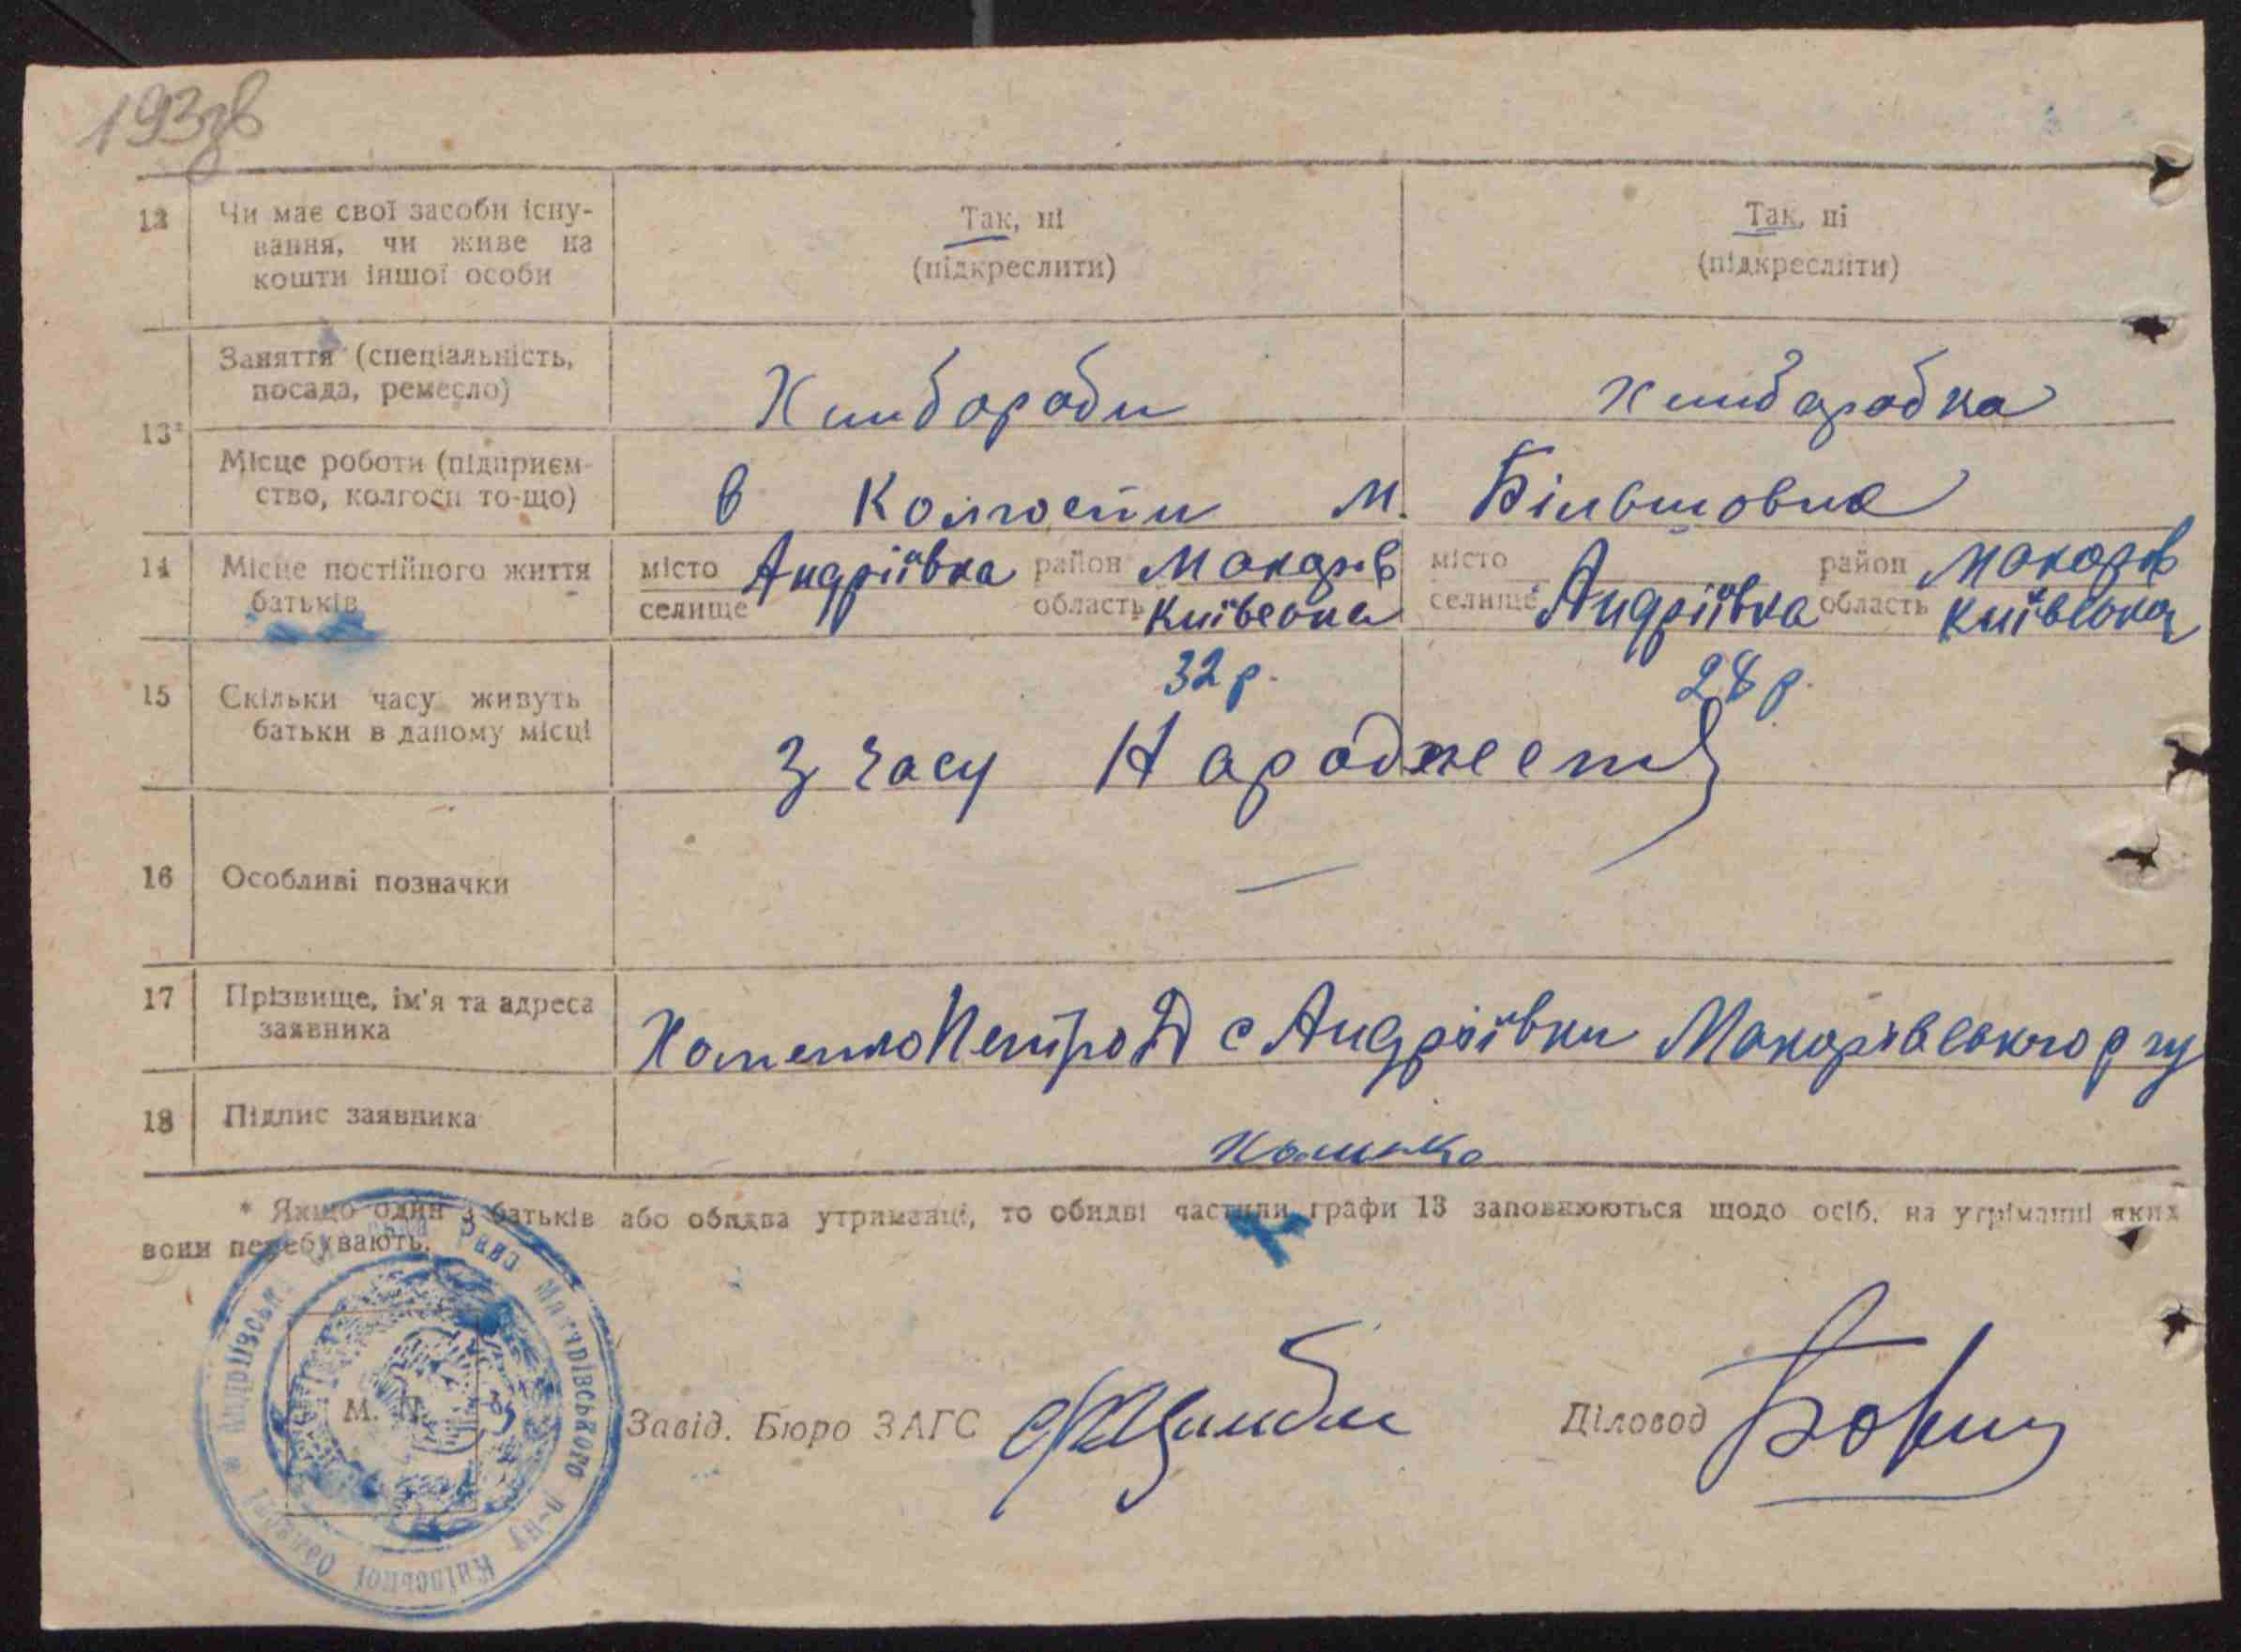 193зв
12 Чи має свої засоби існу-
вання, чи живе на
кошти іншої особи
Так, ні
(підкреслити)
Так, ні
(підкреслити)
13*
Заняття (спеціальність,
посада, ремесло)
Хлибороби
хлиборобка
Місце роботи (підприєм-
ство, колгосп то-що)
в Колгоспи м. Більшовик
14 Місце постійного життя
батьків
місто
селище
Андріївка
район Макарів
область Київська
місто
селище
Андріївка
район Макарів
область Київська
15 Скільки часу живуть
батьки в даному місці
32 р. 28 р.
З часу
16 Особливі позначки
—
17 Прізвище, ім'я та адреса
заявника
Хоменко Петро Д с Андріївки Макарівського р ну
18 Підпис заявника
Хоменко
* Якщо один з батьків або обидва утриманці, то обидві частини графи 13 заповнюються щодо осіб, на утріманні яких
вони перебувають.
Андріївська Рада Макарівського р-ну Київської Області
М. П.
Завід. Бюро ЗАГС
Діловод